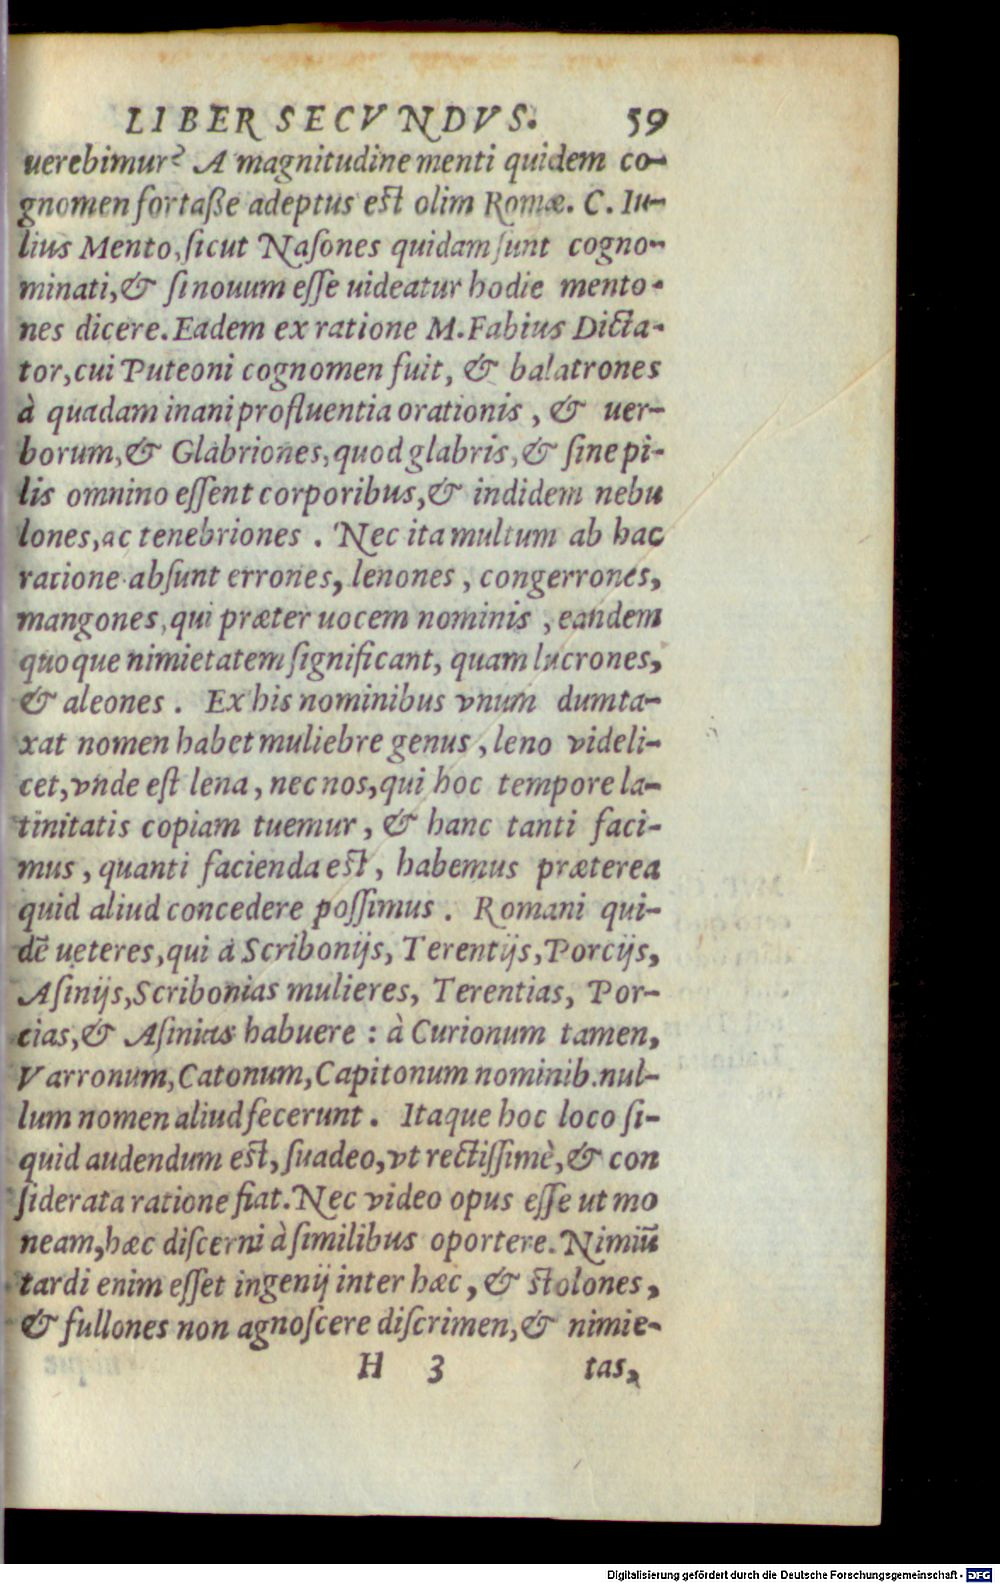 LIBER SECVNDVS. 59
uerebimur? A magnitudine menti quidem co-
gnomen fortaße adeptus est olim Romæ. C. Iu-
lius Mento, ſicut Naſones quidam ſunt cogno-
minati, & ſi nouum eſſe uideatur hodie mento-
nes dicere. Eadem ex ratione M. Fabius Dicta-
tor, cui Puteoni cognomen fuit, & balatrones
à quadam inani profluentia orationis, & uer-
borum, & Glabriones, quod glabris, & ſine pi-
lis omnino eſſent corporibus, & indidem nebu
lones, ac tenebriones. Nec ita multum ab hac
ratione abſunt errones, lenones, congerrones,
mangones, qui præter uocem nominis, eandem
quoque nimietatem ſignificant, quam lucrones,
& aleones. Ex his nominibus vnum dumta-
xat nomen habet muliebre genus, leno videli-
cet, vnde eſt lena, nec nos, qui hoc tempore la-
tinitatis copiam tuemur, & hanc tanti faci-
mus, quanti facienda est, habemus præterea
quid aliud concedere poſſimus. Romani qui-
dē ueteres, qui à Scribonijs, Terentijs, Porcijs,
Aſinijs, Scribonias mulieres, Terentias, Por-
cias, & Aſinias habuere : à Curionum tamen,
Varronum, Catonum, Capitonum nominib. nul-
lum nomen aliud fecerunt. Itaque hoc loco ſi-
quid audendum est, ſuadeo, vt rectiſſimè, & con
ſiderata ratione fiat. Nec video opus eſſe ut mo
neam, hæc diſcerni à ſimilibus oportere. Nimiū
tardi enim eſſet ingenij inter hæc, & stolones,
& fullones non agnoſcere diſcrimen, & nimie-
H 3 tas,
Digitalisierung gefördert durch die Deutsche Forschungsgemeinschaft - DFG